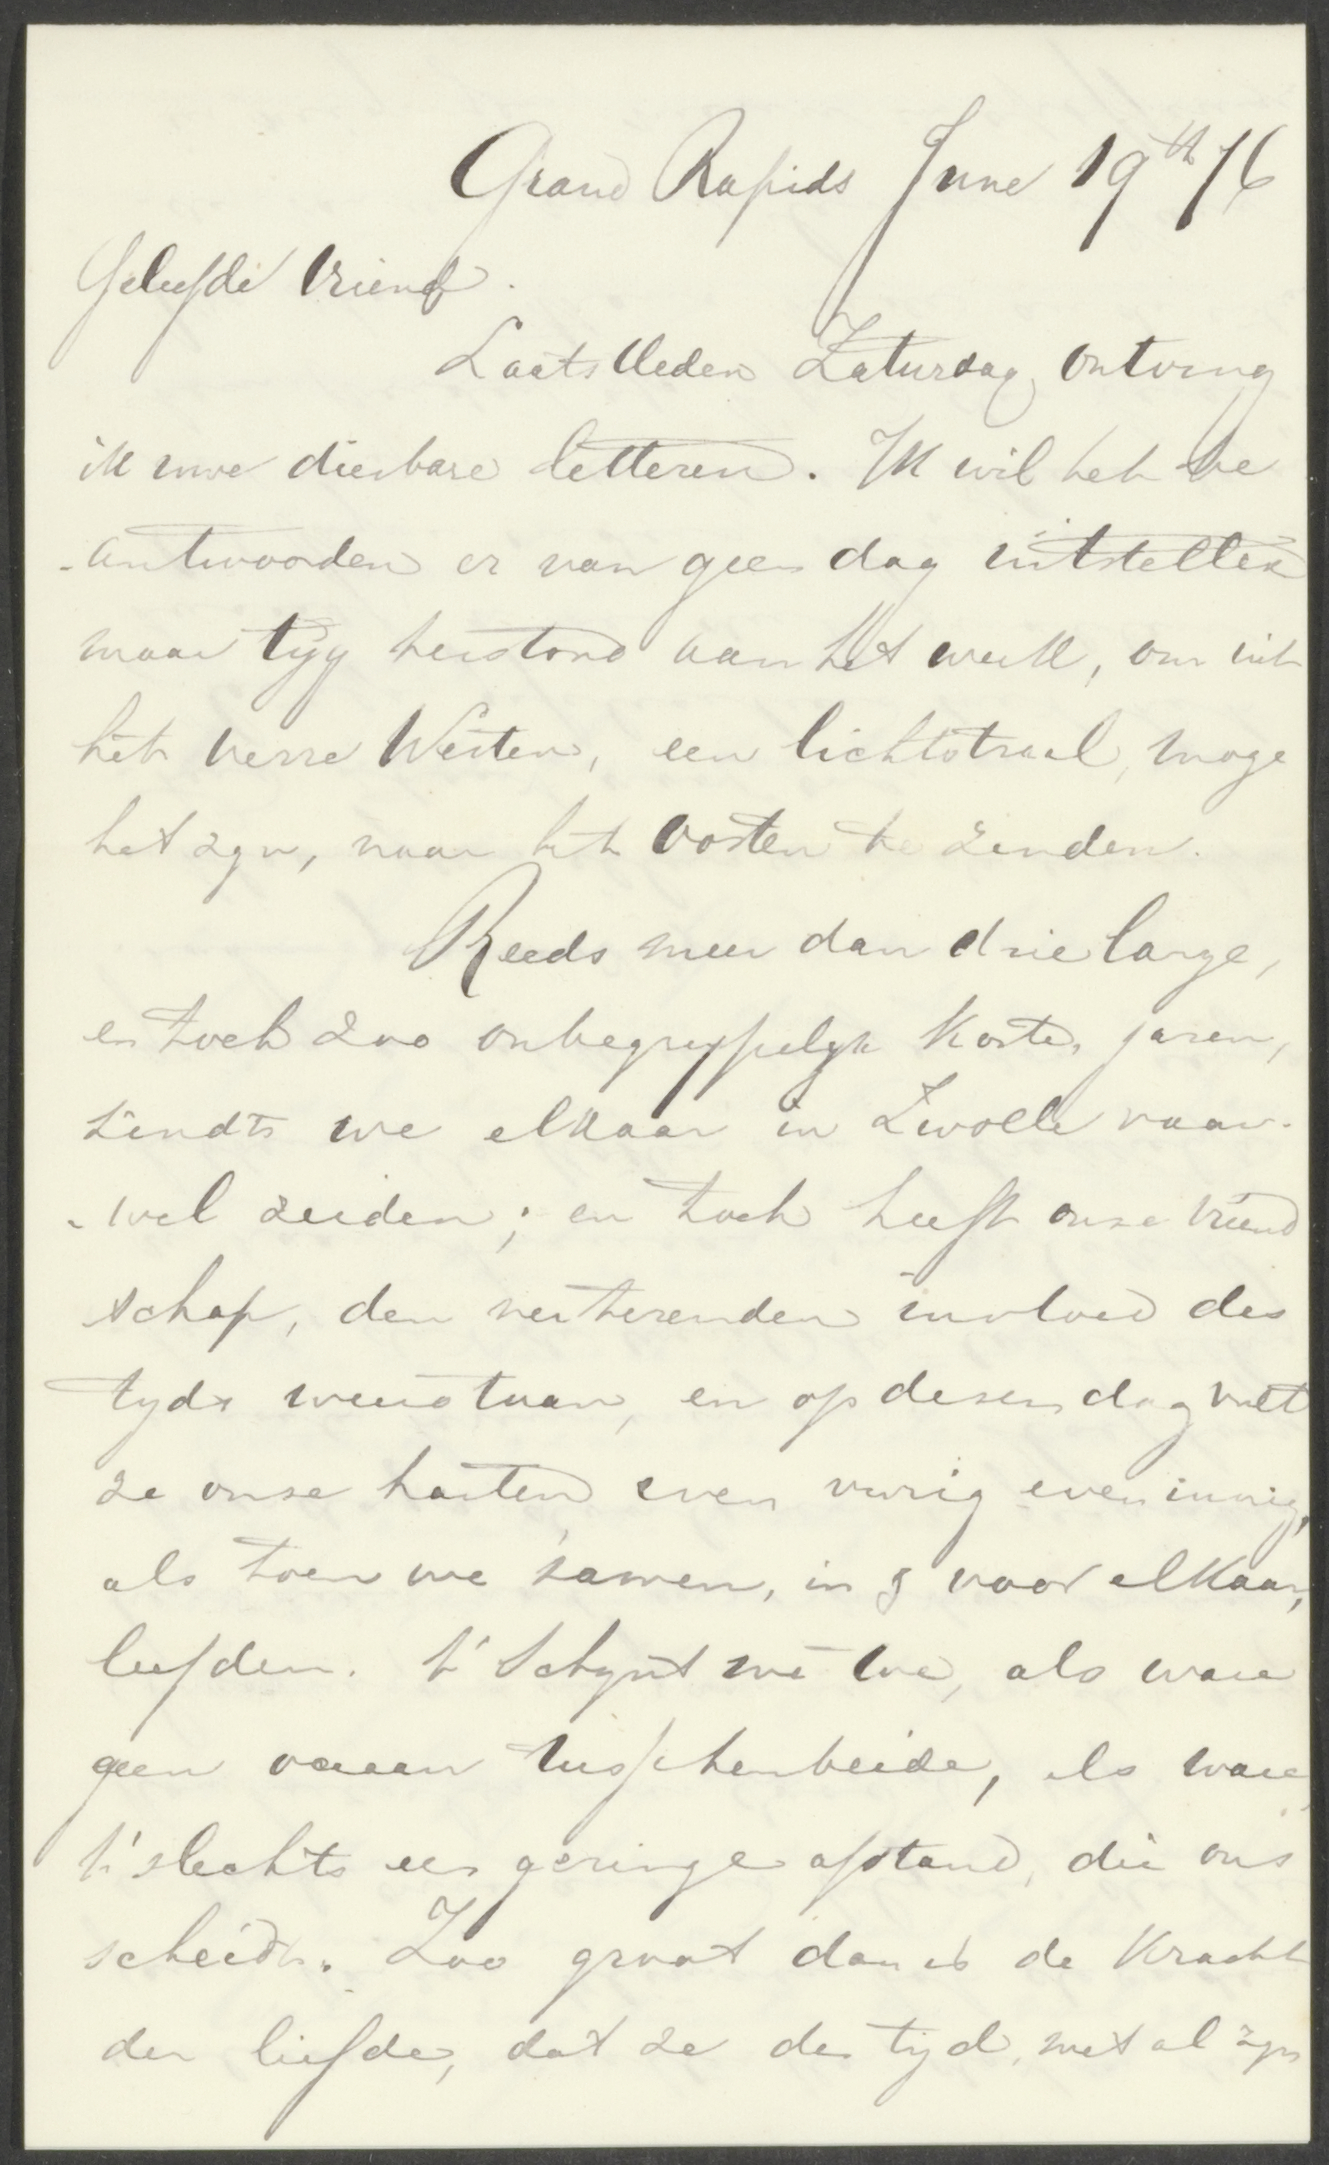 Grand Rapids June 19th 76
Geliefde Vriend.
Laatstleden Zaturdag ontving
ik uwe dierbare letteren. Ik wil het be
-antwoorden er van geen dag uitstellen
maar tyg terstond aan het werk, om uit
het verre Westen, een lichtstraal, moge
het zyn, naar het Oosten te zenden.
Reeds meer dan drie lange,
en toch zoo onbegrypelyk korte, jaren,
sindts we elkaar in Zwolle vaar-
-wel zeiden; en toch heeft onze vriend
schap, den verterenden invloed des
tyds weerstaan, en op dezen dag
ze onze harten even vurig even innig,
als toen we samen, in & voor elkaar,
leefden. t' Schynt me toe, als ware
geen oceaan tusschenbeide, als ware
t' slechts een geringe afstand, die ons
scheidt. Zoo groot dan is de Kracht
der liefde, dat ze de tijd, met al zyn